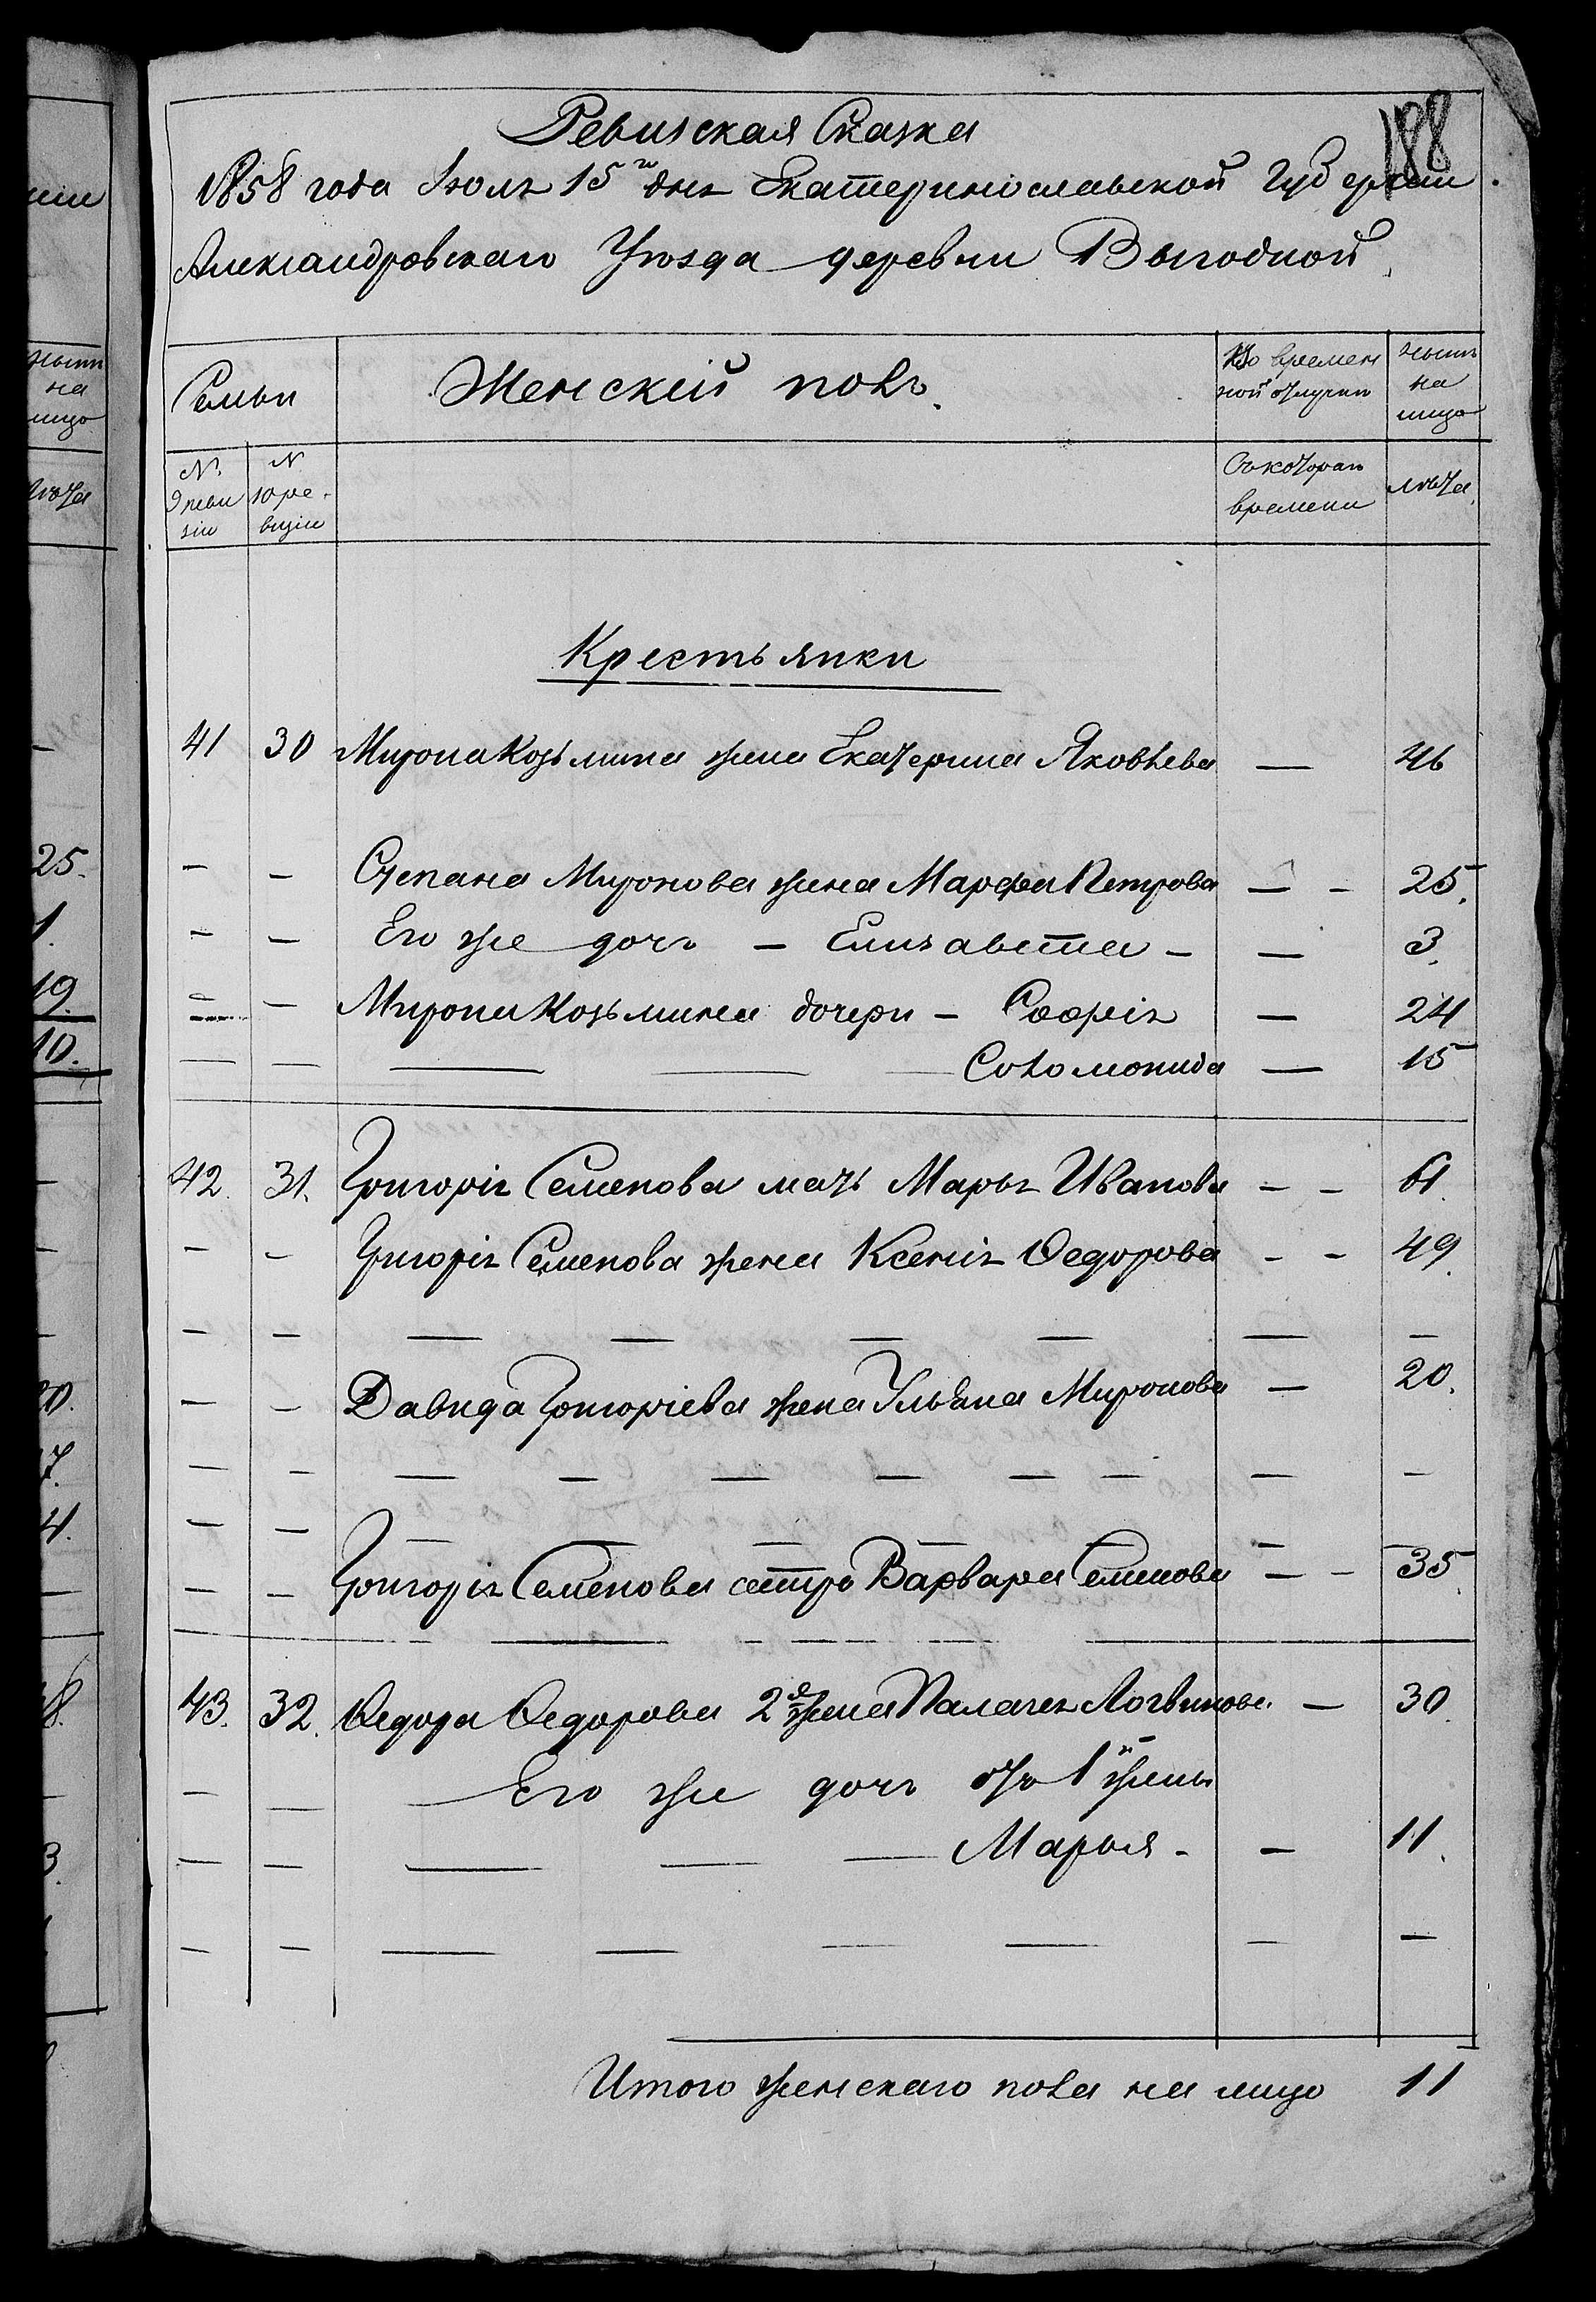 188
Ревизская Сказка
1858 года Іюля 15го дня Екатеринославской Губерніи
Александровскаго Уѣзда деревни Выгодной.
Семьи
Женскій полъ.
Во времен
ной отлучки
Нынѣ
на
лицо
№
9 реви
зіи
№
10 ре-
визіи
Съ котораго
времени
Лѣта.
Крестьянки
41 30 Мирона Козьмина жена Екатерина Яковлева — 46
— — Степана Миронова жена Марфа Петрова — — 25.
— — Его же дочь — Елизавета — — 3.
— — Мирона Козьмина дочери — Софія — 24
— — — — — Соломонида — 15
42. 31. Григорія Семенова мать Марья Иванова — — 61.
— — Григорія Семенова жена Ксенія Ѳедорова — — 49.
— — — — — — — —
— — Давида Григоріева жена Ульяна Миронова — 20.
— — — — — — — — — —
— — — — — — —
— — Григорія Семенова сестра Варвара Семенова — — 35.
43. 32. Ѳедора Ѳедорова 2я жена Палагея Логвинова — 30.
— — Его же дочь отъ 1й жены
— — — — — Марья — — 11.
— — — — — — — —
Итого женскаго пола на лицо 11
нiи
Нынѣ
на
лицо
Лѣта
25.
1.
19.
10.
20.
7.
4.
8.
3.